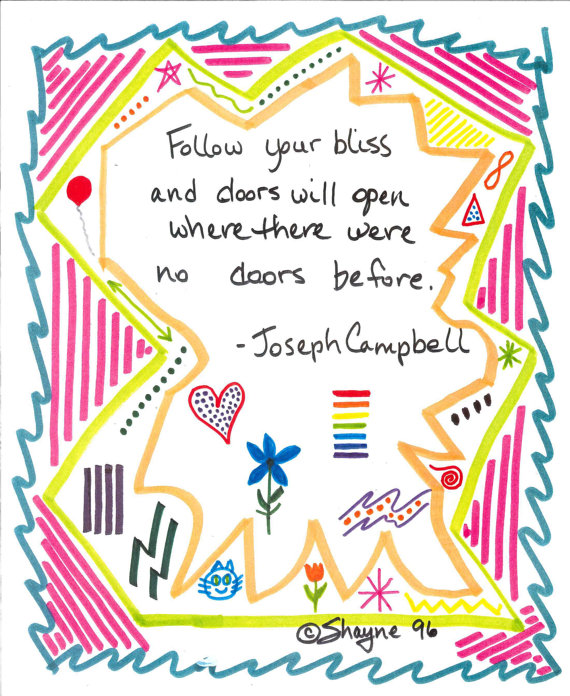 Follow your bliss
and doors will open
where there were
no doors before.
- Joseph Campbell
©Shayne 96